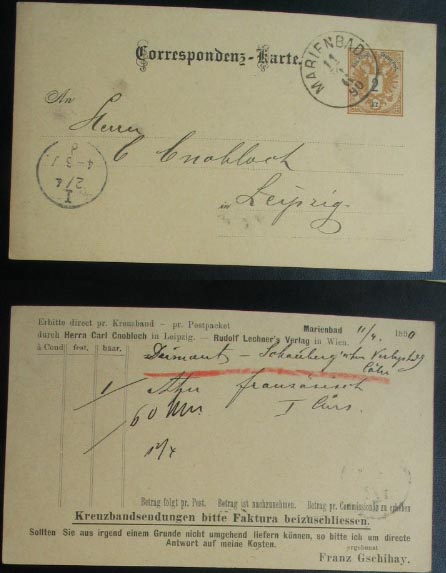 Correspondenz-Karte.
MARIENBAD
11
90
2
An
Herrn
C Cnobloch
in Leipzig.
I
2/4
4-5
Erbitte direct pr. Kreuzband - pr. Postpacket
Marienbad 11/4. 1890
durch Herrn Carl Cnobloch in Leipzig. — Rudolf Lechner's Verlag in Wien.
à Cond. fest. baar.
Verlagshdlg
1/ französisch
60 I Curs.
12/4
Betrag folgt pr. Post. Betrag ist nachzunehmen. Betrag pr. Commissionär zu erheben
Kreuzbandsendungen bitte Faktura beizuschliessen.
Sollten Sie aus irgend einem Grunde nicht umgehend liefern können, so bitte ich um directe
Antwort auf meine Kosten.
ergebenst
Franz Gschihay.